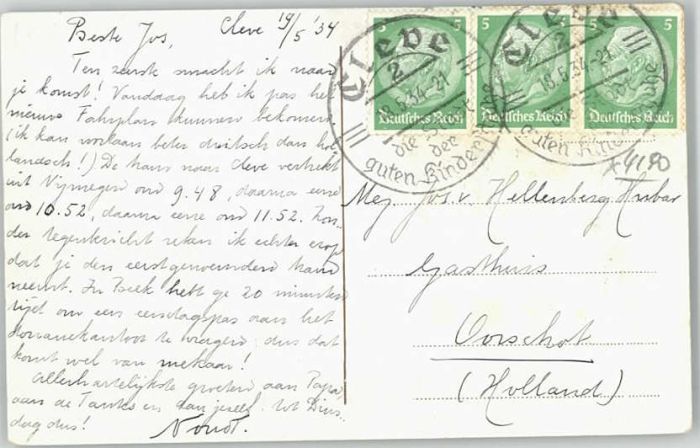 Beste Jos, Cleve 19/5 '34
Ten zeerste smacht ik naar
je komst! Vandaag heb ik pas het
nieuwe Fahrplan kunnen bekomen
(ik kan voortaan beter duitsch dan hol-
landsch!) De tram naar Cleve vertrekt
uit Nijmegen om 9.48, daarna eerst
om 10.52, daarna eerst om 11.52. Zon-
der tegenbericht reken ik echter erop
dat je den eerstgenoemden tram
neemt. In Beek hebt ge 20 minuten
tijd om een eendagspas aan het
douanekantoor te vragen; dus dat
komt wel van mekaar!
Allerhartelijkste groeten aan Papa
aan de Tantes en aan jezelf. tot Dins-
dag dus!
Cleve
2
18.5.34-21
die Stätte
der
guten Kinderärzte
5 5 5
Deutsches Reich
Deutsches Reich
Deutsches Reich
Cleve
2
18.5.34-21
Mej. Jos. v. Hellenberg Hubar
Gasthuis
Oirschot
(Holland)